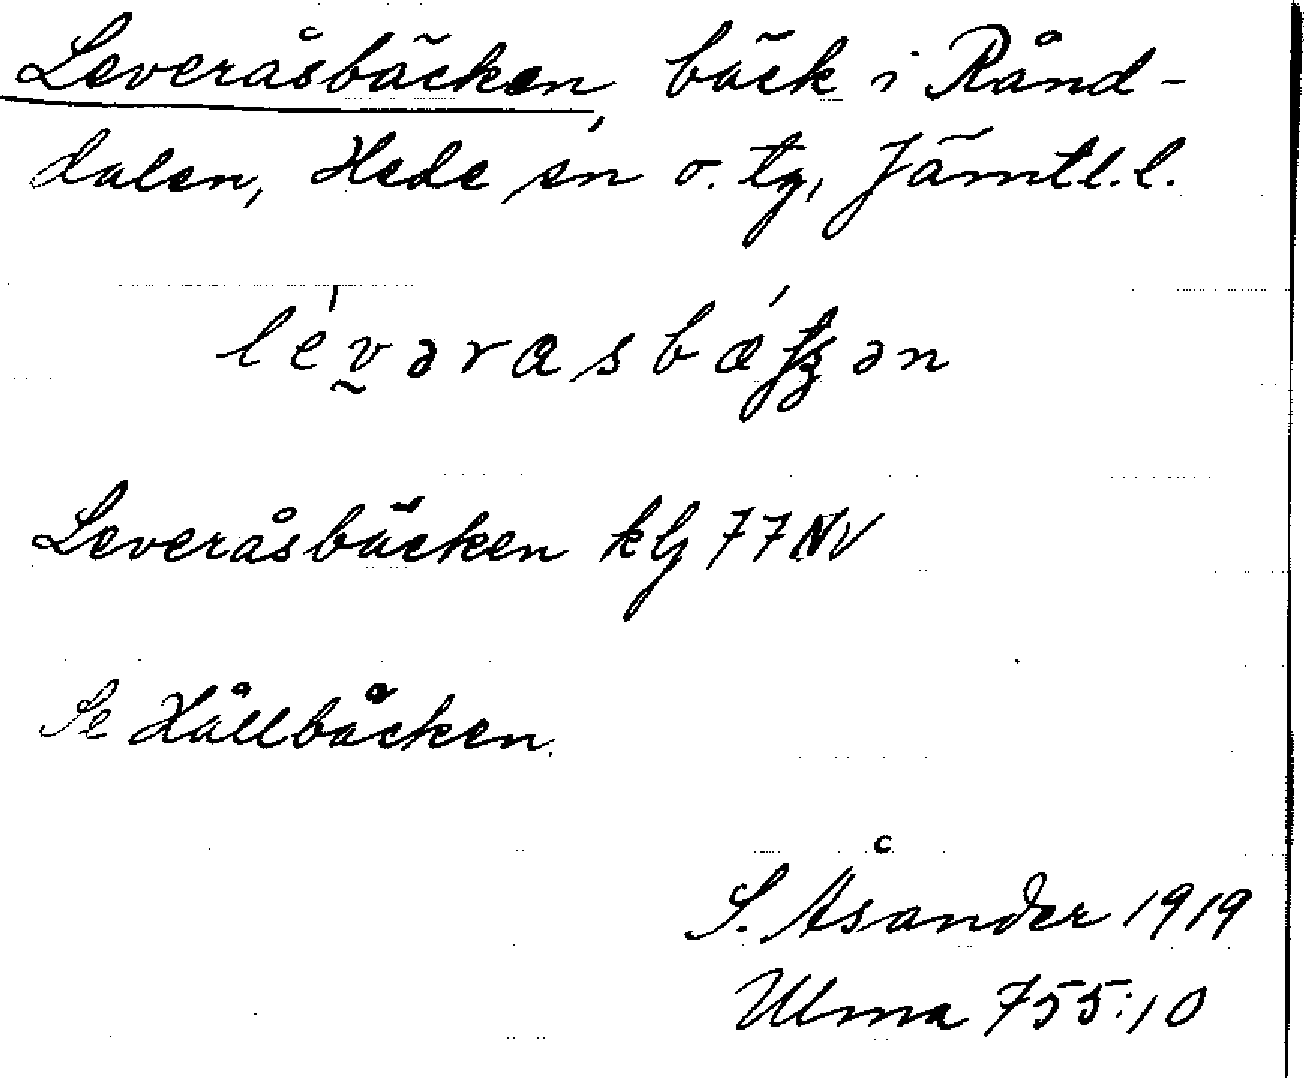 Leveråsbäcken, bäck i Rånd-
dalen, Hede sn o. tg, Jämtl.l.
lévərasbǽtʒən
Leveråsbäcken kbl 77NV
Se Hållbäcken.
S. Åsander 1919
Ulma 755:10